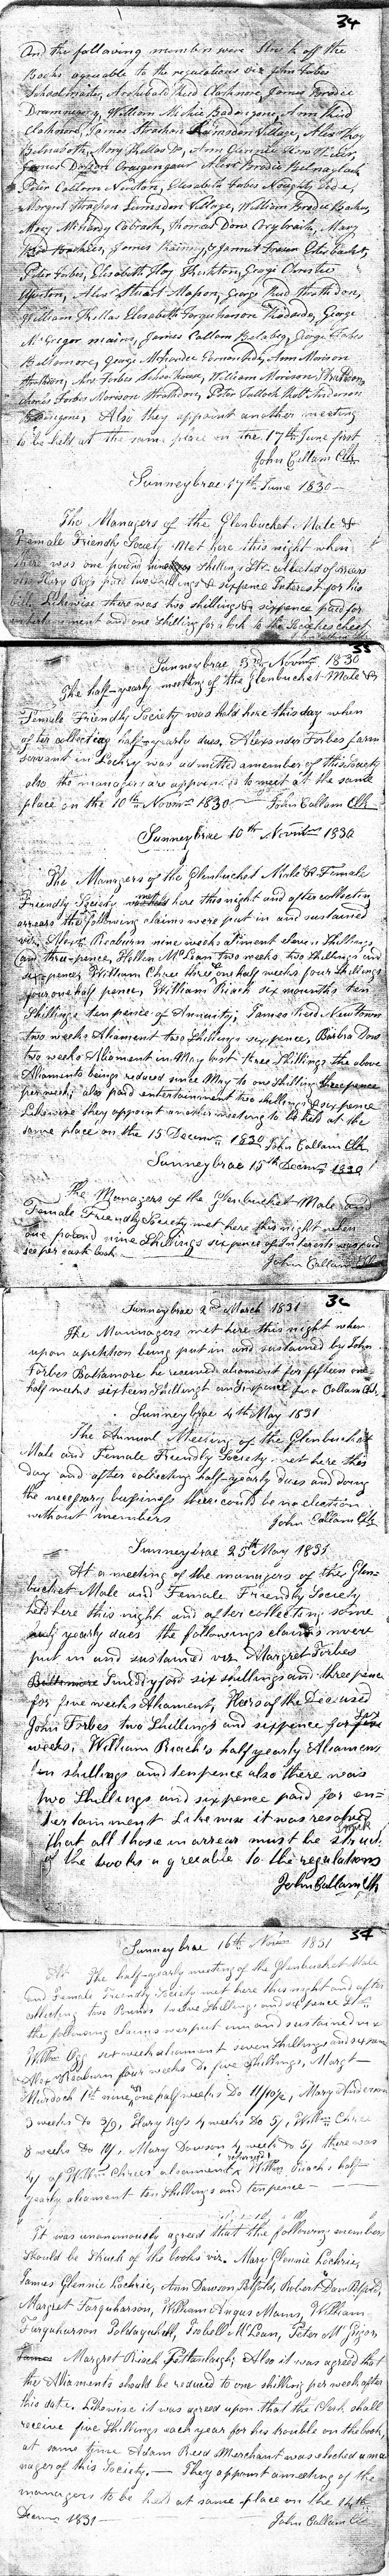 34
And the following members were struck off the
Books agreeable to the regulations viz John Forbes
Schoolmaster, Archibald Reid Clashmore, James Brodie
Drumnagarry, William Michie Badenyone, Ann Reid
Clashmore, James Strachan Lumsden Village, Alexr Troy
Belnaboth, Mary Kellas Do, Ann Gunnie
James Dawson Craigengaur Alexr Brodie Belnaglack
Peter Callam Newton, Elisabeth Forbes
Margret Strachan Lumsden Village, William Brodie
Mary McHardy Cabrach, Thomas Dow Crybrach, Mary
James Rainny, & Jannet Fraser
Peter Forbes, Elisabeth Hay George Christie
Upperton, Alexr Stuart Mason, George Reid Strathdon,
William Kellas Elisabeth Farquharson George
McGregor mains, James Callam George Forbes
Beltimore, George McHardie Ann Morison
Strathdon, Mrs Forbes Schoolhouse, William Morison Strathdon,
James Forbes Morison Strathdon, Peter Tulloch Robt Anderson
Badenyone, Also they appoint another meeting
to be held at the same place on the 17th June first
John Callam Clk
Sunneybrae 17th June 1830
The Managers of the Glenbucket Male &
Female Friendly Society Met here this night when
there was one pound shillings Str collected of arears
Hary Ogg paid two shillings & sixpence Interest for his
bill. Likewise there was two shillings & sixpence paid for
entertainment and one shilling for a lock to the Societies chest
35
Sunneybrae 3rd Novmr 1830
The half-yearly meeting of the Glenbucket Male &
Female Friendly Society was held here this day when
after collecting half-yearly dues. Alexander Forbes farm
servant in Lochry was admitted a member of this Society
also the managers are appointed to meet at the same
place on the 10th Novmr 1830 John Callam Clk
Sunneybrae 10th Novmr 1830
The Managers of the Glenbucket Male & Female
Friendly Society met here this night and after collecting
arrears the following claims were put in and sustained
viz. Alexr Reaburn nine weeks aliment eleven Shillings
and three-pence, Hellen McLean two weeks two shillings and
sixpence, William Chree three & one half weeks four Shillings
four one half pence, William Riach six mounths ten
Shillings ten pence of Annuity; James Reid Newtown
two weeks Aliament two Shillings sixpence, Barbra Don
two weeks Aliament in May last three Shillings the above
Aliaments being reduced since May to one Shilling threepence
per week; also paid entertainment two shillings & sixpence
Likewise they appoint another meeting to be held at the
same place on the 15 Decemr 1830 John Callam Clk
Sunneybrae 15th Decmr 1830
The Managers of the Glenbucket Male and
Female Friendly Society met here this night when
one pound nine Shillings six pence of Interests was paid
see per cash book. John Callam Clk
36
Sunneybrae 2nd March 1831
The Mannagers met here this night when
upon apetition being put in and sustained by John
Forbes Baltamore he received aliament for fifteen one
half weeks sixteen Shillings an Sixpence Callam Clk
Sunneybrae 4th May 1831
The Annual Meeting of the Glenbucket
Male and Female Friendly Society met here this
day and after collecting half-yearly dues and doing
the necessary business there could be no election
without members John Callam Clk
Sunneybrae 25th May 1831
At a meeting of the managers of this Glen=
bucket Male and Female Friendly Society
held here this night and after collecting some
half yearly dues the followings claims were
put in and sustained viz. Margret Forbes
Baltimore six shillings and three pence
for five weeks Aliament, Heirs of the Deceased
John Forbes two Shillings and sixpence for six
weeks, William Riach's half yearly Aliament
ten shillings and tenpence also there was
two Shillings and sixpence paid for en=
tertainment Likewise it was resolved
that all those in arrear must be struck
of the books agreeable to the regulations
John Callam Clk
37
Sunneybrae 16th Novmr 1831
At The half-yearly meeting of the Glenbucket Male
and Female Friendly Society met here this night and after
collecting two Pounds twelve Shillings and six pence
the following claims wer put inn and sustained viz
Willm Ogg six weeks aliament seven shillings and sixpence
Alex Reaburn four weeks Do five Shillings, Margt
Murdoch 1st nine & one half weeks Do 11/10½, Mary Anderson
3 weeks Do 3/9, Hary Ross 4 weeks Do 5/, Willm Chree
8 weeks Do 10/, Mary Dawson 4 weeks Do 5/ there was
4/ of Willm Chrees aliament returned, Willm Riach's half-
yearly aliament ten Shillings and tenpence
It was unanimously agreed that the following members
Should be Struck of the books viz. Mary Glennie Lochrie,
James Glennie Lochrie, Ann Dawson Robert Dow
Margret Farquharson, William Angus Mains, William
Farquharson Isobell McLean, Peter McGrigor,
Margret Riach Also it was agreed that
the Aliaments should be reduced to one shilling per week after
this date. Likewise it was agreed upon that the Clark shall
receive five Shillings each year for his trouble on the book,
at same time Adam Reed Merchant was elected a ma
nager of this Society. They appoint a meeting of the
managers to be held at same place on the 14th
Decmr 1831 John Callam Clk